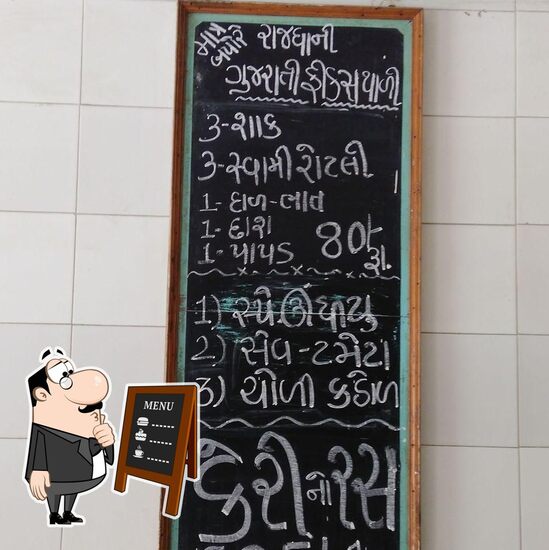 માત્ર
બપોરે
રાજધાની
ગુજરાતી ફીક્સ થાળી
3-શાક
3-સ્વામી રોટલી
1-દાળ-ભાત
1-છાશ
1-પાપડ
80/- રૂા.
2) સેવ-ટમેટા
3) ચોળી કઠોળ
કેરી નો રસ
MENU